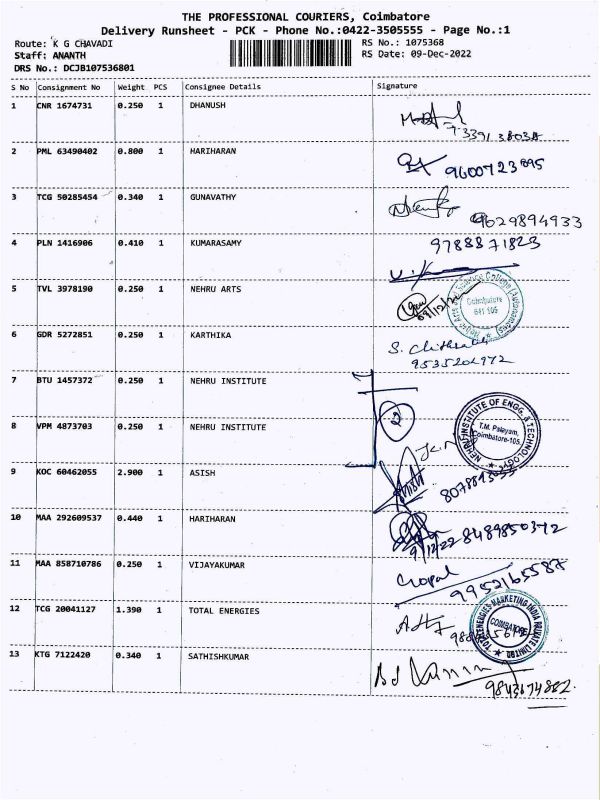 THE PROFESSIONAL COURIERS, Coimbatore
Delivery Runsheet - PCK - Phone No.:0422-3505555 - Page No.:1
Route: K G CHAVADI
RS No.: 1075368
Staff: ANANTH
RS Date: 09-Dec-2022
DRS No.: DCJB107536801
S No Consignment No Weight PCS Consignee Details Signature
1 CNR 1674731 0.250 1 DHANUSH
2 PML 63490402 0.800 1 HARIHARAN
9600723895
3 TCG 50285454 0.340 1 GUNAVATHY
9629894933
4 PLN 1416906 0.410 1 KUMARASAMY
9788871823
5 TVL 3978190 0.250 1 NEHRU ARTS
Coimbatore
641 105
6 GDR 5272851 0.250 1 KARTHIKA
7 BTU 1457372 0.250 1 NEHRU INSTITUTE
8 VPM 4873703 0.250 1 NEHRU INSTITUTE
2
NEHRU INSTITUTE OF ENGG. & TECHNOLOGY
T.M. Palayam,
Coimbatore-105.
9 KOC 60462055 2.900 1 ASISH
10 MAA 292609537 0.440 1 HARIHARAN
9/12/22 8489850372
11 MAA 858710786 0.250 1 VIJAYAKUMAR
Gopal
9952165587
12 TCG 20041127 1.390 1 TOTAL ENERGIES
COIMBATORE
13 KTG 7122420 0.340 1 SATHISHKUMAR